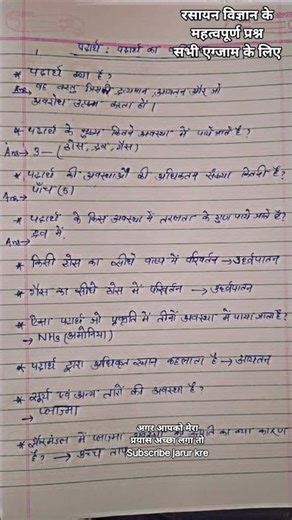 रसायन विज्ञान के
महत्वपूर्ण प्रश्न
सभी एग्जाम के लिए
1. पदार्थ : पदार्थ का
* पदार्थ क्या है ?
Ans→ वह वस्तु जिसमें द्रव्यमान, आयतन और जो
अवरोध उत्पन्न करता हो।
* पदार्थ के मुख्य कितने अवस्था में पाये जाते है ?
Ans→ 3 – (ठोस, द्रव, गैस)
* पदार्थ की अवस्थाओं की अधिकतम संख्या कितनी है ?
Ans→ पाँच (5)
* पदार्थ के किस अवस्था में तरलता के गुण पाये जाते है ?
Ans→ द्रव में.
* किसी ठोस का सीधे वाष्प में परिवर्तन → उर्ध्वपातन
* गैस का सीधे ठोस में परिवर्तन → उर्ध्वपातन
* ऐसा पदार्थ जो प्रकृति में तीनों अवस्था में पाया जाता है ?
→ NH3 (अमोनिया)
* पदार्थ द्वारा अधिकृत स्थान कहलाता है → आयतन
* सूर्य एवं अन्य तारों की अवस्था है ?
→ प्लाज्मा
* सौरमंडल में प्लाज्मा का क्या कारण
है ? → उच्च ताप
अगर आपको मेरा
प्रयास अच्छा लगा तो
Subscribe jarur kre